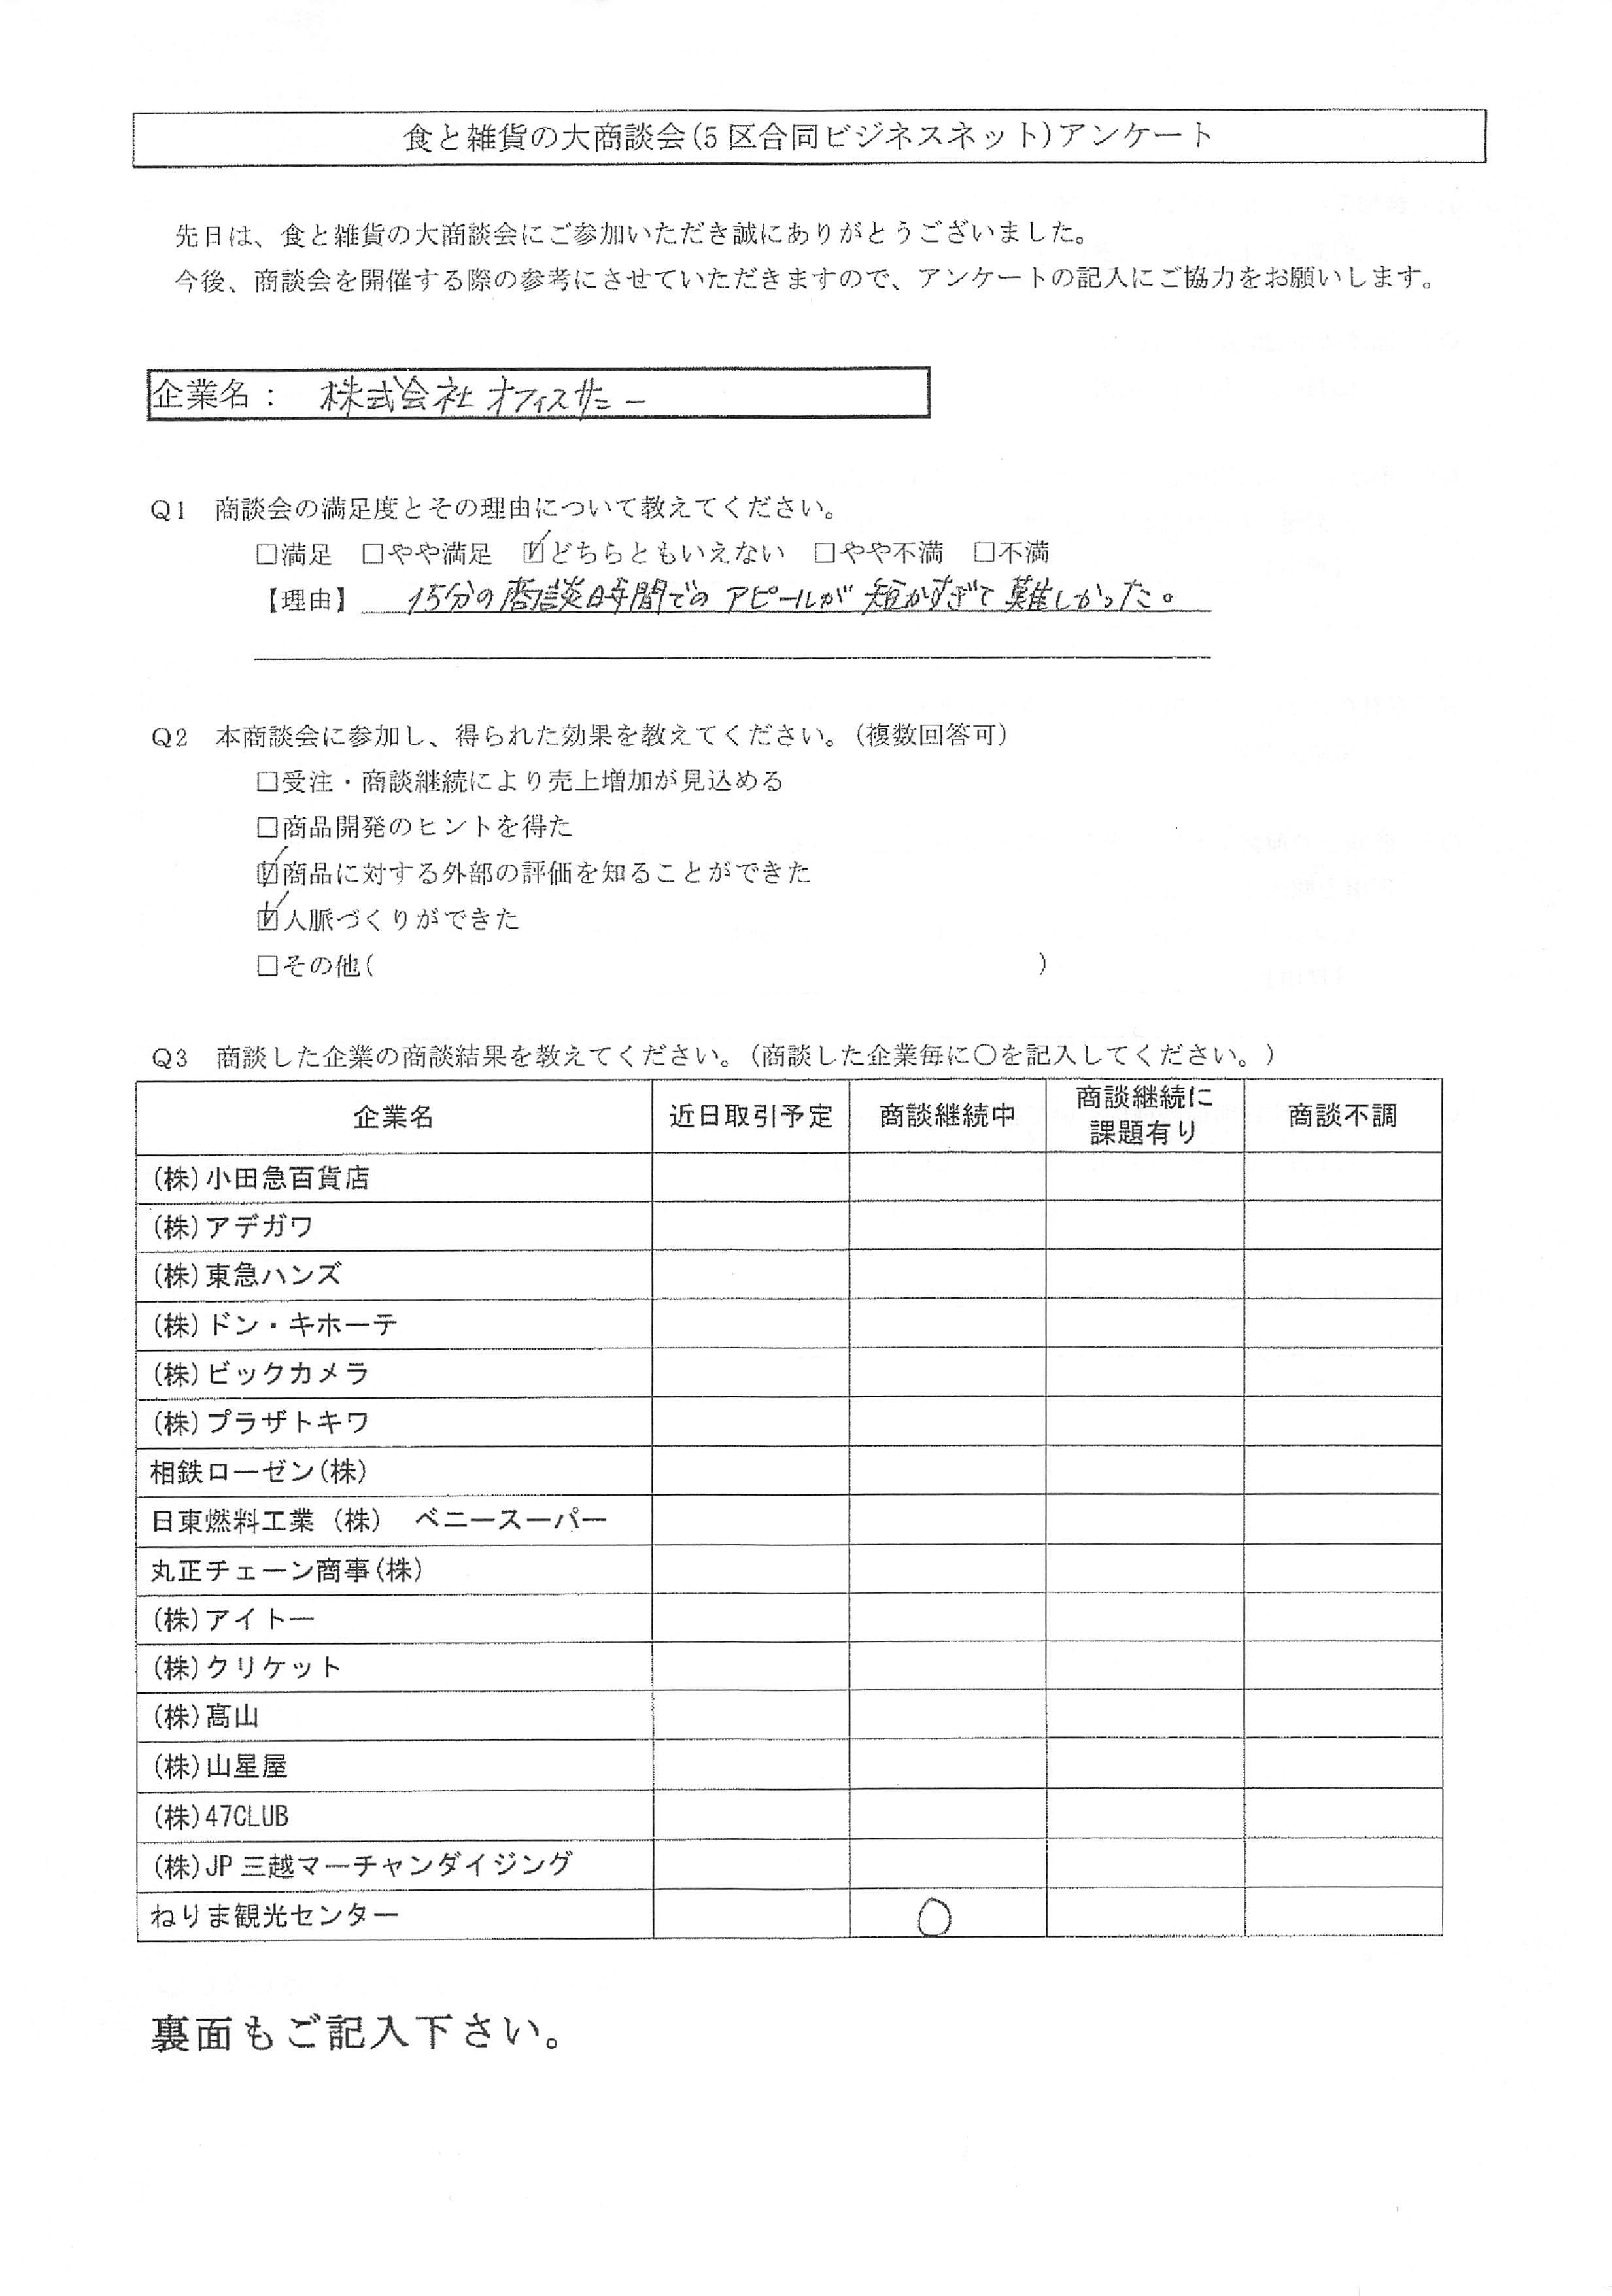 食と雑貨の大商談会(5区合同ビジネスネット)アンケート
先日は、食と雑貨の大商談会にご参加いただき誠にありがとうございました。
今後、商談会を開催する際の参考にさせていただきますので、アンケートの記入にご協力をお願いします。
企業名： 株式会社 オフィスサニー
Q1 商談会の満足度とその理由について教えてください。
□満足 □やや満足 ☑どちらともいえない □やや不満 □不満
【理由】 15分の商談時間でのアピールが短かすぎて難しかった。
Q2 本商談会に参加し、得られた効果を教えてください。(複数回答可)
□受注・商談継続により売上増加が見込める
□商品開発のヒントを得た
☑商品に対する外部の評価を知ることができた
☑人脈づくりができた
□その他( )
Q3 商談した企業の商談結果を教えてください。(商談した企業毎に○を記入してください。)
企業名 近日取引予定 商談継続中 商談継続に課題有り 商談不調
(株)小田急百貨店
(株)アデガワ
(株)東急ハンズ
(株)ドン・キホーテ
(株)ビックカメラ
(株)プラザトキワ
相鉄ローゼン(株)
日東燃料工業（株） ベニースーパー
丸正チェーン商事(株)
(株)アイトー
(株)クリケット
(株)髙山
(株)山星屋
(株)47CLUB
(株)JP三越マーチャンダイジング
ねりま観光センター ○
裏面もご記入下さい。